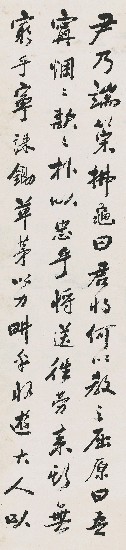 尹乃端策拂龜曰君将何以教之屈原曰吾
寧悃悃款款朴以忠乎将送往勞来斯無
窮乎寧誅鋤草茅以力畊乎将遊大人以